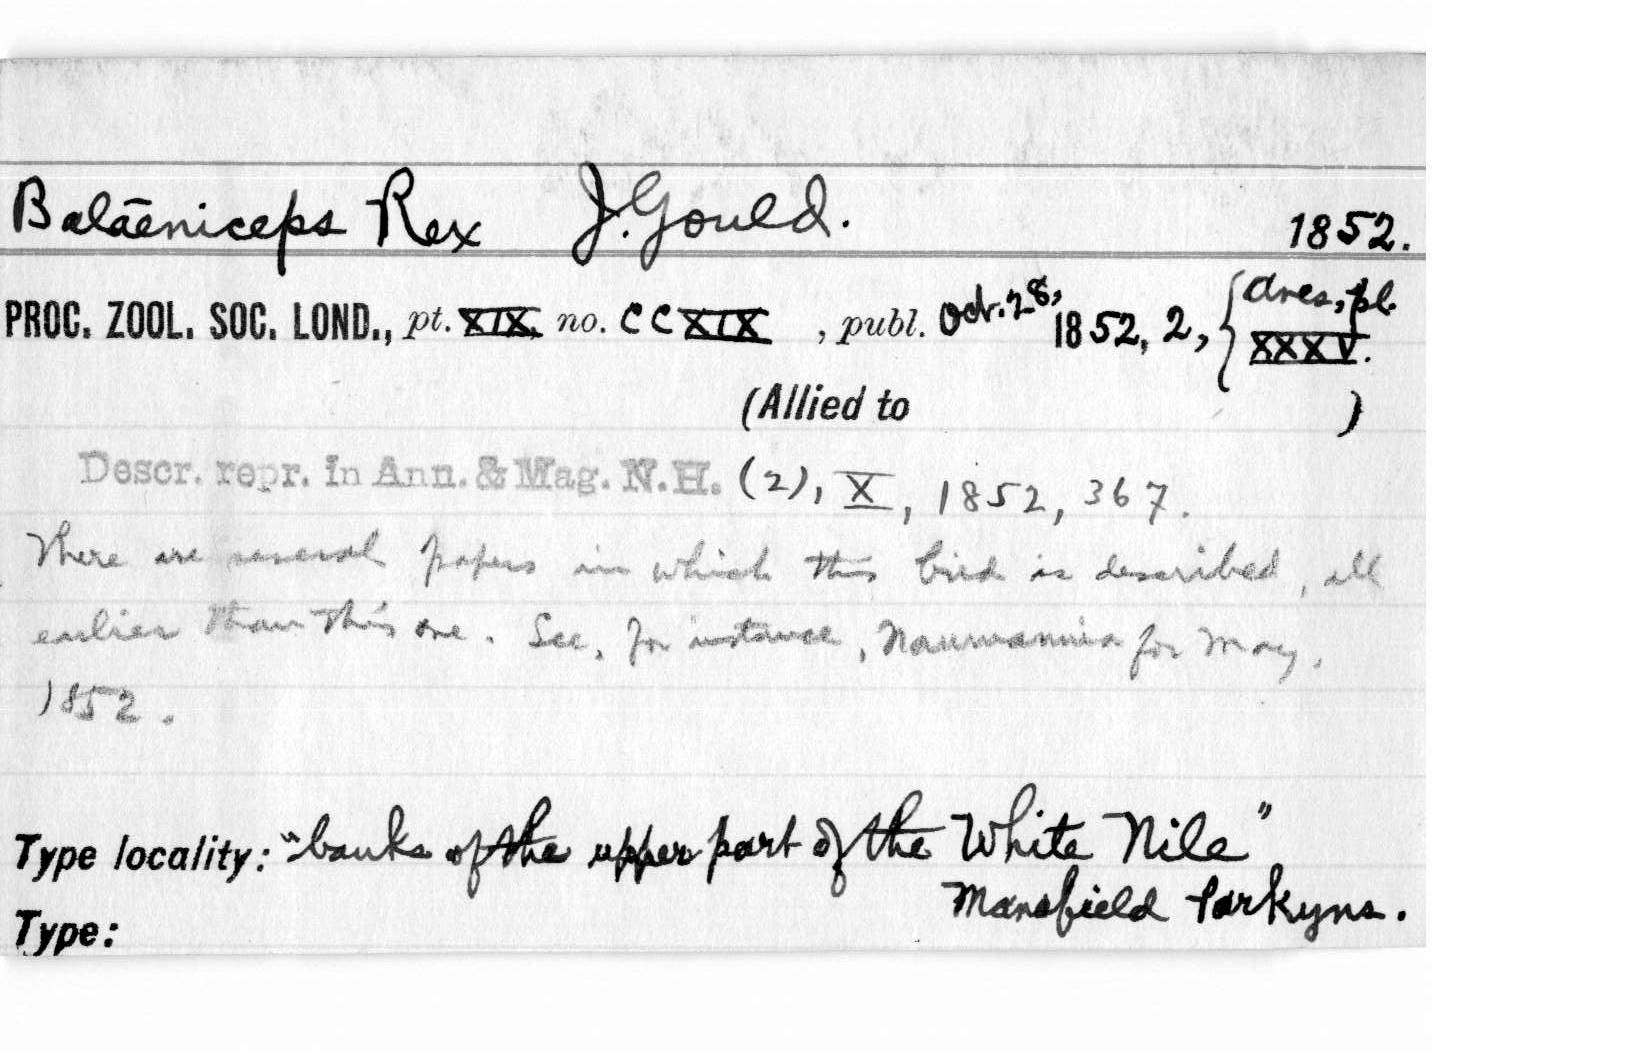 Balāeniceps Rex J. Gould. 1852.
PROC. ZOOL. SOC. LOND., pt. XIX, no. CCXIX , publ. Oct. 28, 1852, 2, { Aves, pl. XXXV.
(Allied to )
Descr. repr. in Ann. & Mag. N.H. (2), X, 1852, 367.
There are several papers in which this bird is described, all
earlier than this one. See, for instance, Naumannia for May,
1852.
Type locality: "banks of the upper part of the White Nile"
Mansfield Parkyns.
Type: